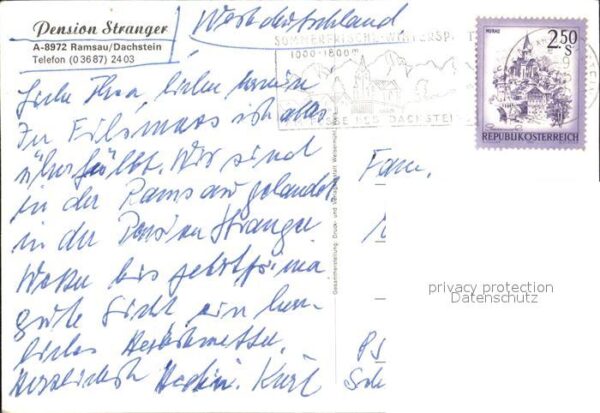 Pension Stranger
A-8972 Ramsau/Dachstein
Telefon (0 36 87) 24 03
Westdeutschland
SOMMERFRISCHE-WINTERSP
1000-1800m
DACHSTEIN
MURAU
2.50
S
REPUBLIK ÖSTERREICH
Liebe Ilna, lieber
In Filzmoos ist alles
überfüllt. Wir sind
in der Ramsau gelandet
in der Pension Stranger
Wetter bis jetzt prima
gute Sicht ein herr-
liches Herbstwetter.
Herzlichst Hedin. Kurt
Fam.
Gesamtherstellung: Druck- und Verlagsanstalt
privacy protection
Datenschutz